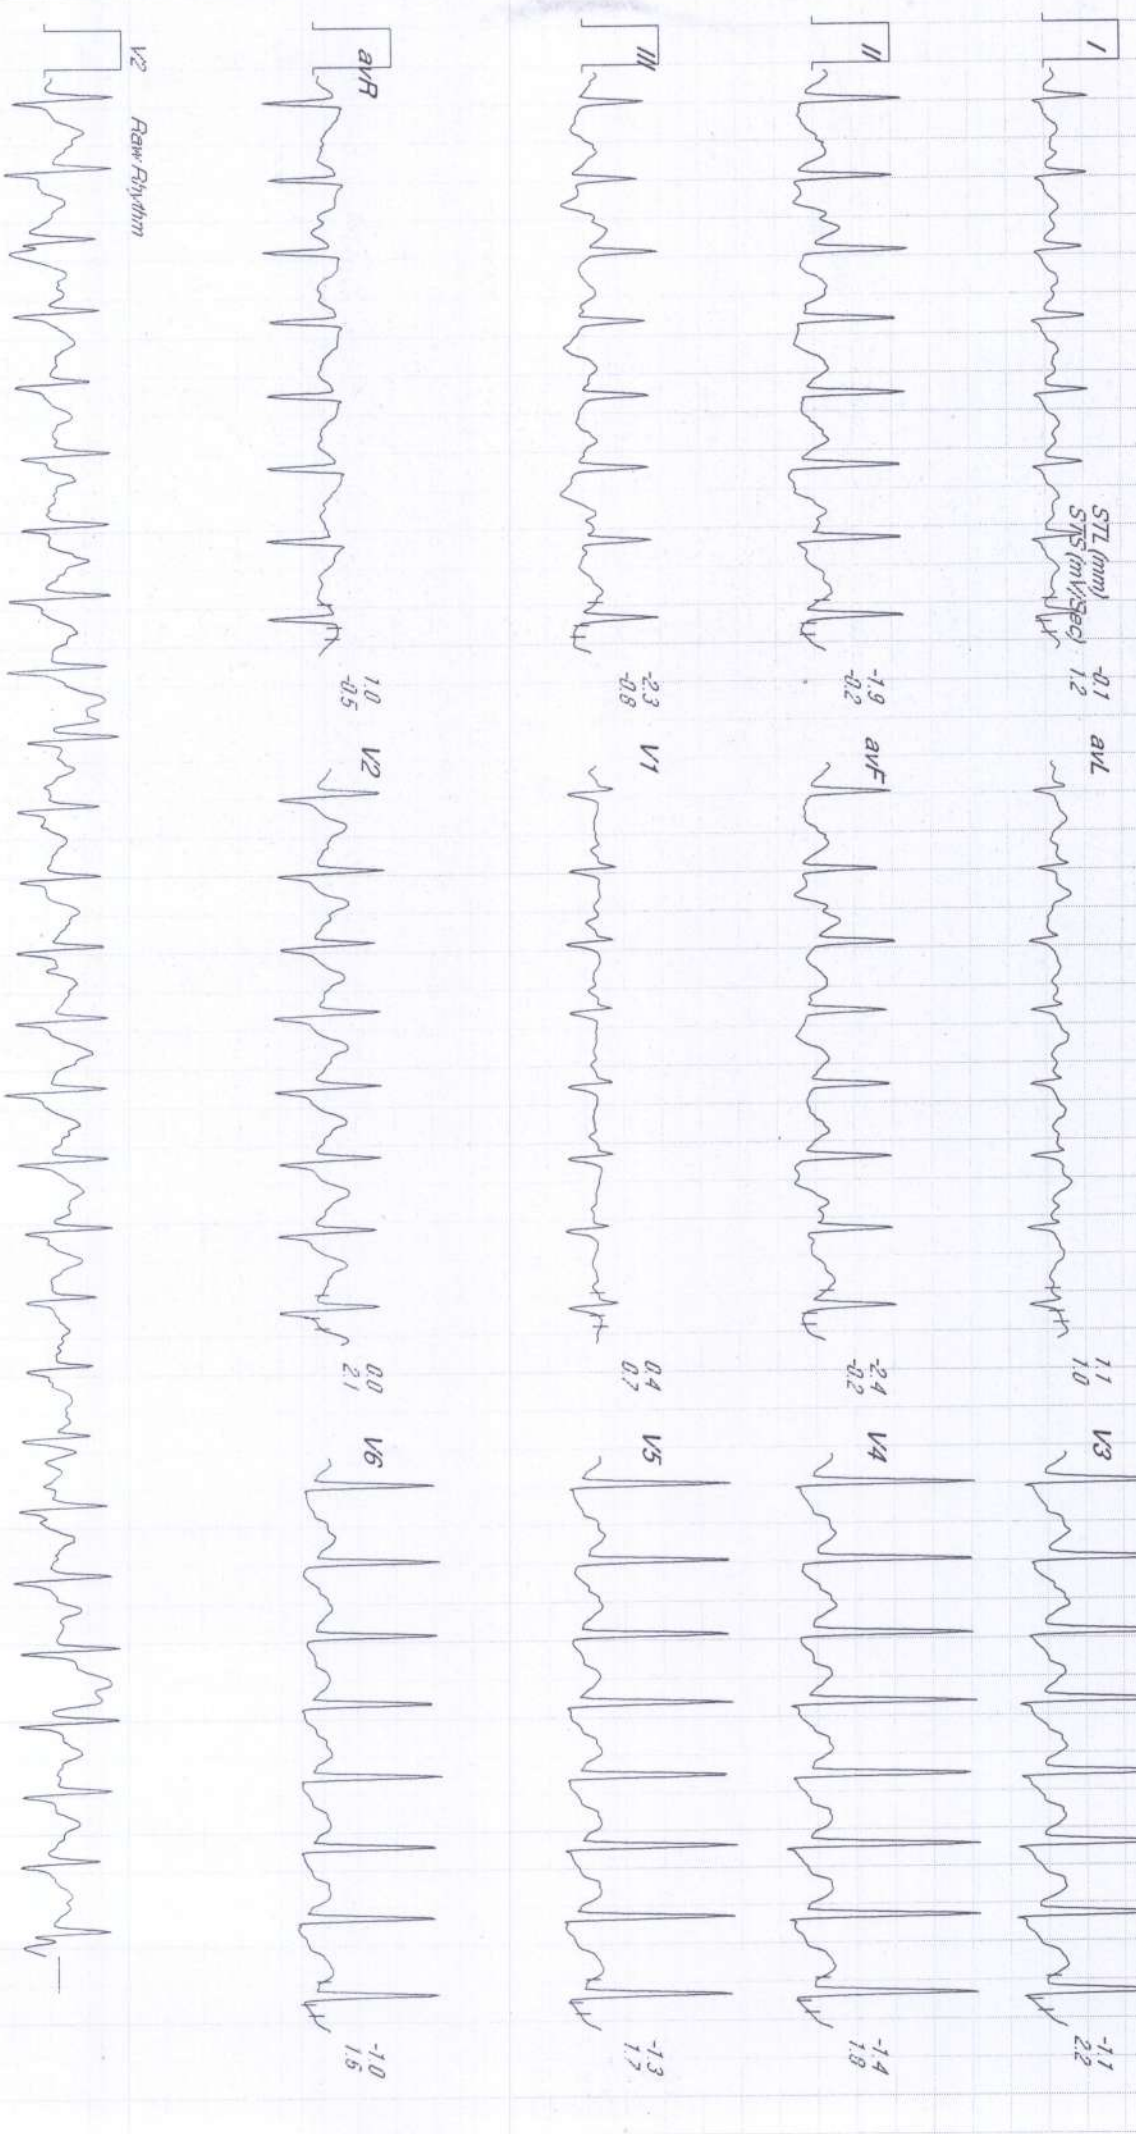 I
STL (mm) -0.1
STS (mV/Sec) 1.2
avL
1.1
1.0
V3
-1.1
2.2
II
-1.9
-0.2
avF
-2.4
-0.2
V4
-1.4
1.8
III
-2.3
-0.8
V1
0.4
0.7
V5
-1.3
1.7
avR
1.0
-0.5
V2
0.0
2.1
V6
-1.0
1.6
V2 Raw Rhythm